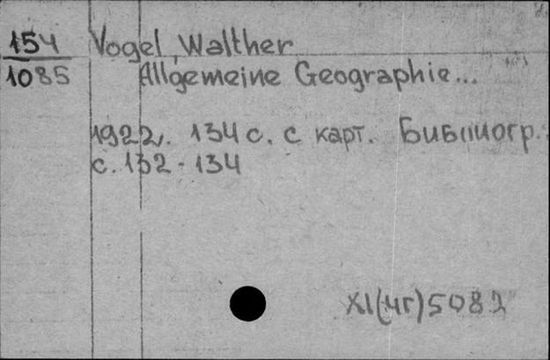 154 Vogel, Walther
1085 Allgemeine Geographie...
1922. 134 с. с карт. Библиогр.:
с. 132-134
XI(4г)5082